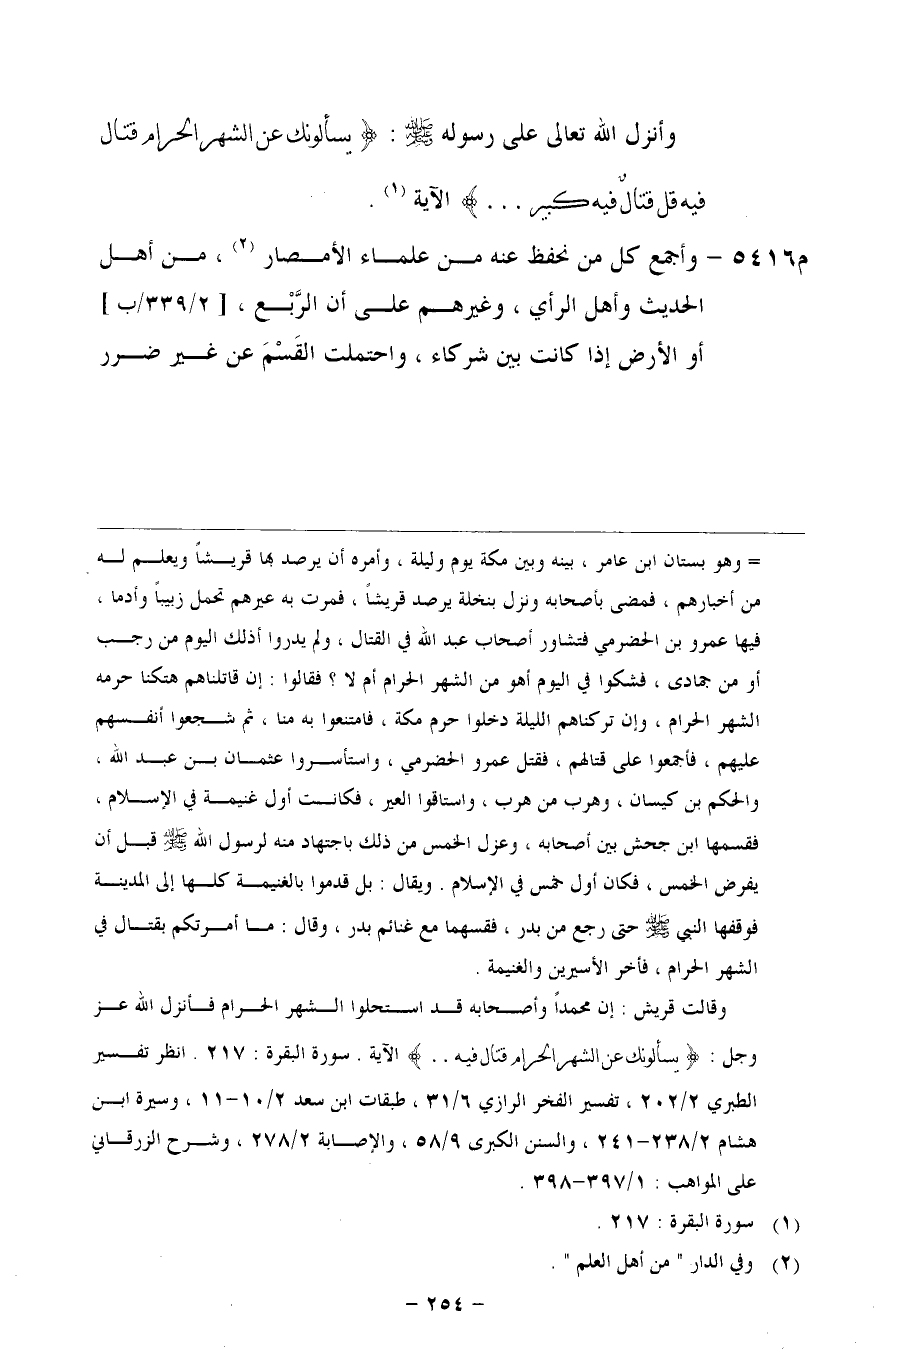 وأنزل الله تعالى على رسوله ﷺ : ﴿ يسألونك عن الشهر الحرام قتال
فيه قل قتالٌ فيه كبير ... ﴾ الآية (١) .
م٥٤١٦ – وأجمع كل من نحفظ عنه مـن علمـاء الأمـصار (٢) ، مـن أهـل
الحديث وأهل الرأي ، وغيرهـم علـى أن الرَّبْـع ، [ ٣٣٩/٢/ب ]
أو الأرض إذا كانت بين شركاء ، واحتملت القَسْمَ عن غـير ضـرر
= وهو بستان ابن عامر ، بينه وبين مكة يوم وليلة ، وأمره أن يرصد بها قريـشاً ويعلـم لـه
من أخبارهم ، فمضى بأصحابه ونزل بنخلة يرصد قريشاً ، فمرت به عيرهم تحمل زبيباً وأدما ،
فيها عمرو بن الحضرمي فتشاور أصحاب عبد الله في القتال ، ولم يدروا أذلك اليوم من رجـب
أو من جمادى ، فشكوا في اليوم أهو من الشهر الحرام أم لا ؟ فقالوا : إن قاتلناهم هتكنا حرمه
الشهر الحرام ، وإن تركناهم الليلة دخلوا حرم مكة ، فامتنعوا به منا ، ثم شـجعوا أنفـسهم
عليهم ، فأجمعوا على قتالهم ، فقتل عمرو الحضرمي ، واستأسـروا عثمـان بـن عبـد الله ،
والحكم بن كيسان ، وهرب من هرب ، واستاقوا العير ، فكانـت أول غنيمـة في الإسـلام ،
فقسمها ابن جحش بين أصحابه ، وعزل الخمس من ذلك باجتهاد منه لرسول الله ﷺ قبـل أن
يفرض الخمس ، فكان أول خمس في الإسلام . ويقال : بل قدموا بالغنيمـة كلـها إلى المدينـة
فوقفها النبي ﷺ حتى رجع من بدر ، فقسهما مع غنائم بدر ، وقال : مـا أمـرتكم بقتـال في
الشهر الحرام ، فأخر الأسيرين والغنيمة .
وقالت قريش : إن محمداً وأصـحابه قـد اسـتحلوا الـشهر الحـرام فـأنزل الله عـز
وجل : ﴿ يسألونك عن الشهر الحرام قتال فيه .. ﴾ الآية . سورة البقرة : ٢١٧ . انظر تفـسير
الطبري ٢٠٢/٢ ، تفسير الفخر الرازي ٣١/٦ ، طبقات ابن سعد ١٠/٢–١١ ، وسيرة ابـن
هشام ٢٣٨/٢–٢٤١ ، والسنن الكبرى ٥٨/٩ ، والإصابة ٢٧٨/٢ ، وشـرح الزرقـاني
على المواهب : ٣٩٧/١–٣٩٨ .
(١) سورة البقرة : ٢١٧ .
(٢) وفي الدار " من أهل العلم " .
– ٢٥٤ –